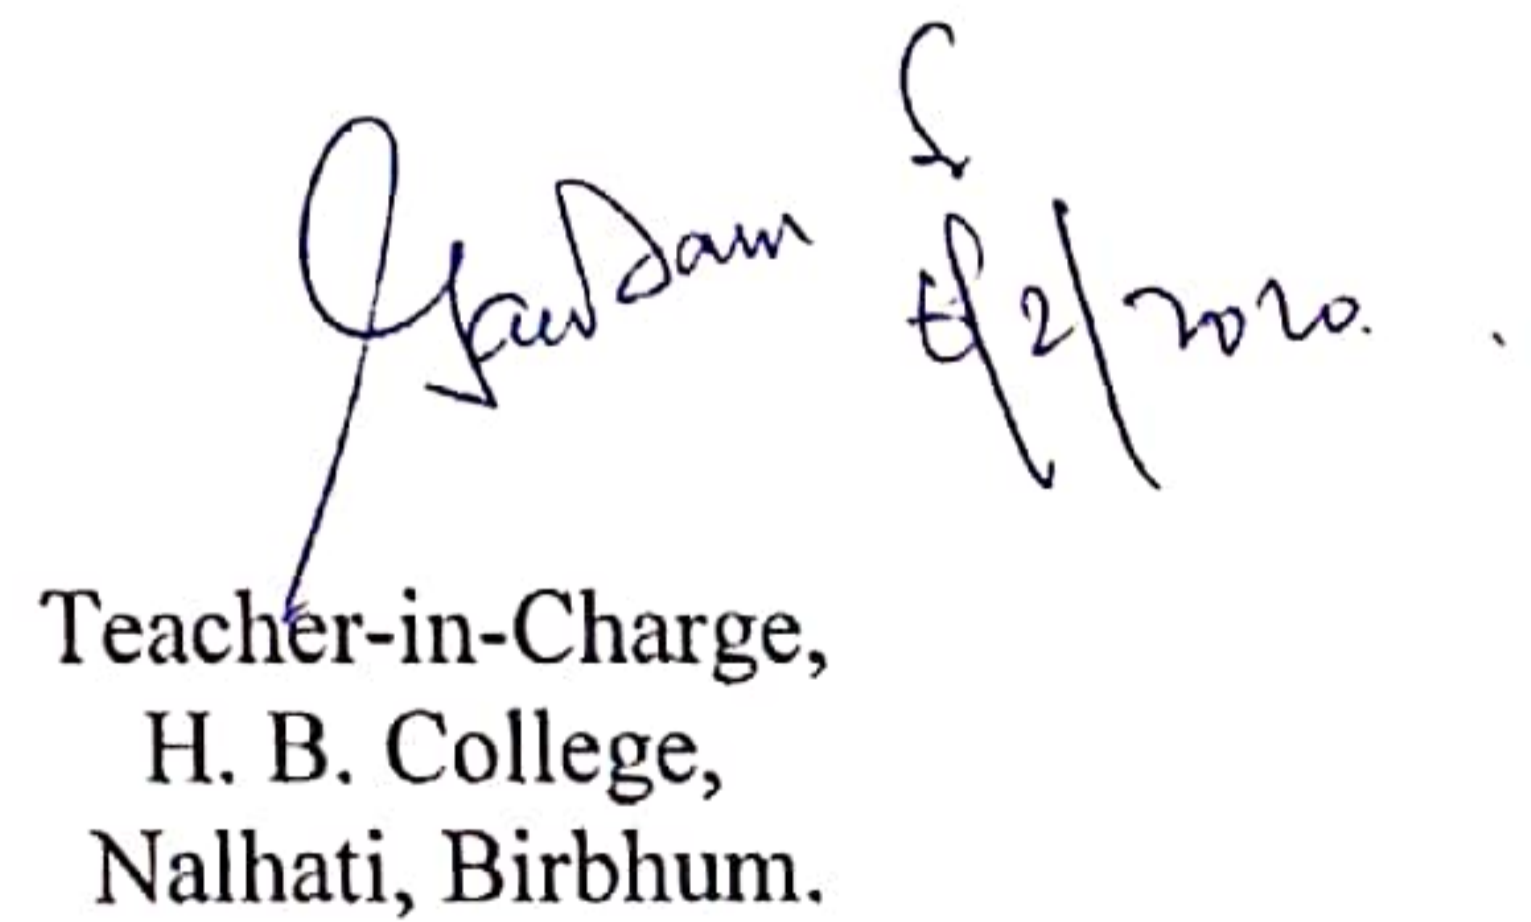 /2/2020.
Teacher-in-Charge,
H. B. College,
Nalhati, Birbhum.